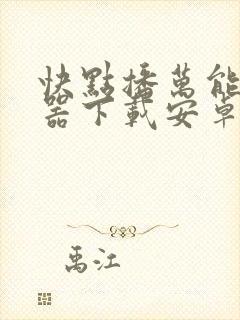 快點播萬能
器下載安卓
禹江